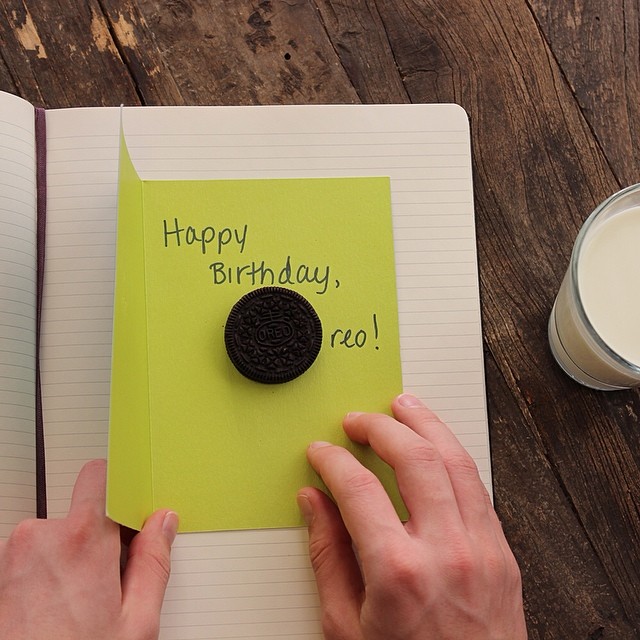 Happy
Birthday,
reo!
OREO